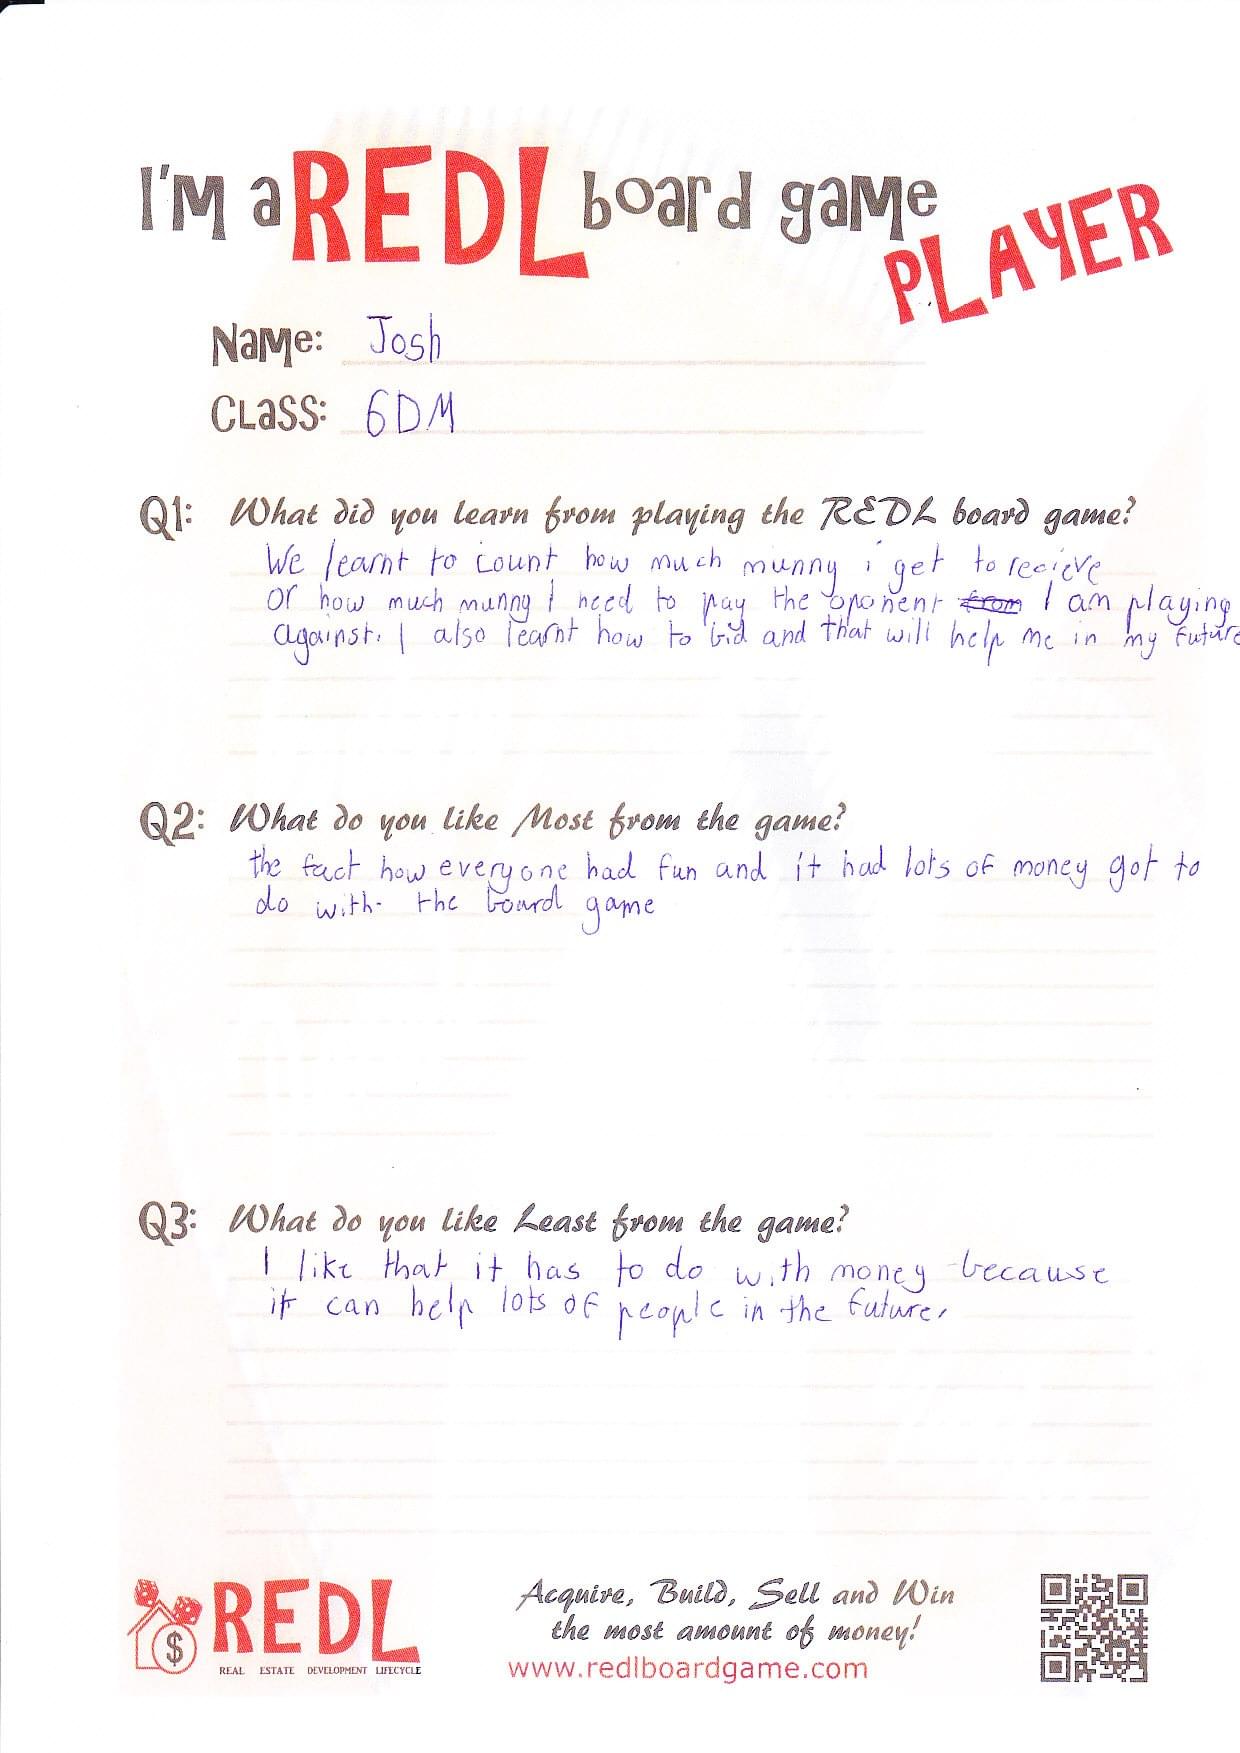 I'm a REDL board game PLAYER
Name: Josh
Class: 6DM
Q1: What did you learn from playing the REDL board game?
We learnt to count how much munny i get to recieve
or how much munny I need to pay the oponent from I am playing
against. I also learnt how to bid and that will help me in my future
Q2: What do you like Most from the game?
the fact how everyone had fun and it had lots of money got to
do with the board game
Q3: What do you like Least from the game?
I like that it has to do with money because
it can help lots of people in the future.
$
REDL
REAL ESTATE DEVELOPMENT LIFECYCLE
Acquire, Build, Sell and Win
the most amount of money!
www.redlboardgame.com